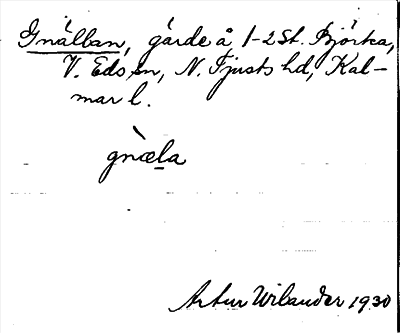 Gnällan, gärde å 1-2 St. Björka,
V. Eds sn, N. Tjusts hd, Kal-
mar l.
gnæla
Artur Wilander 1930